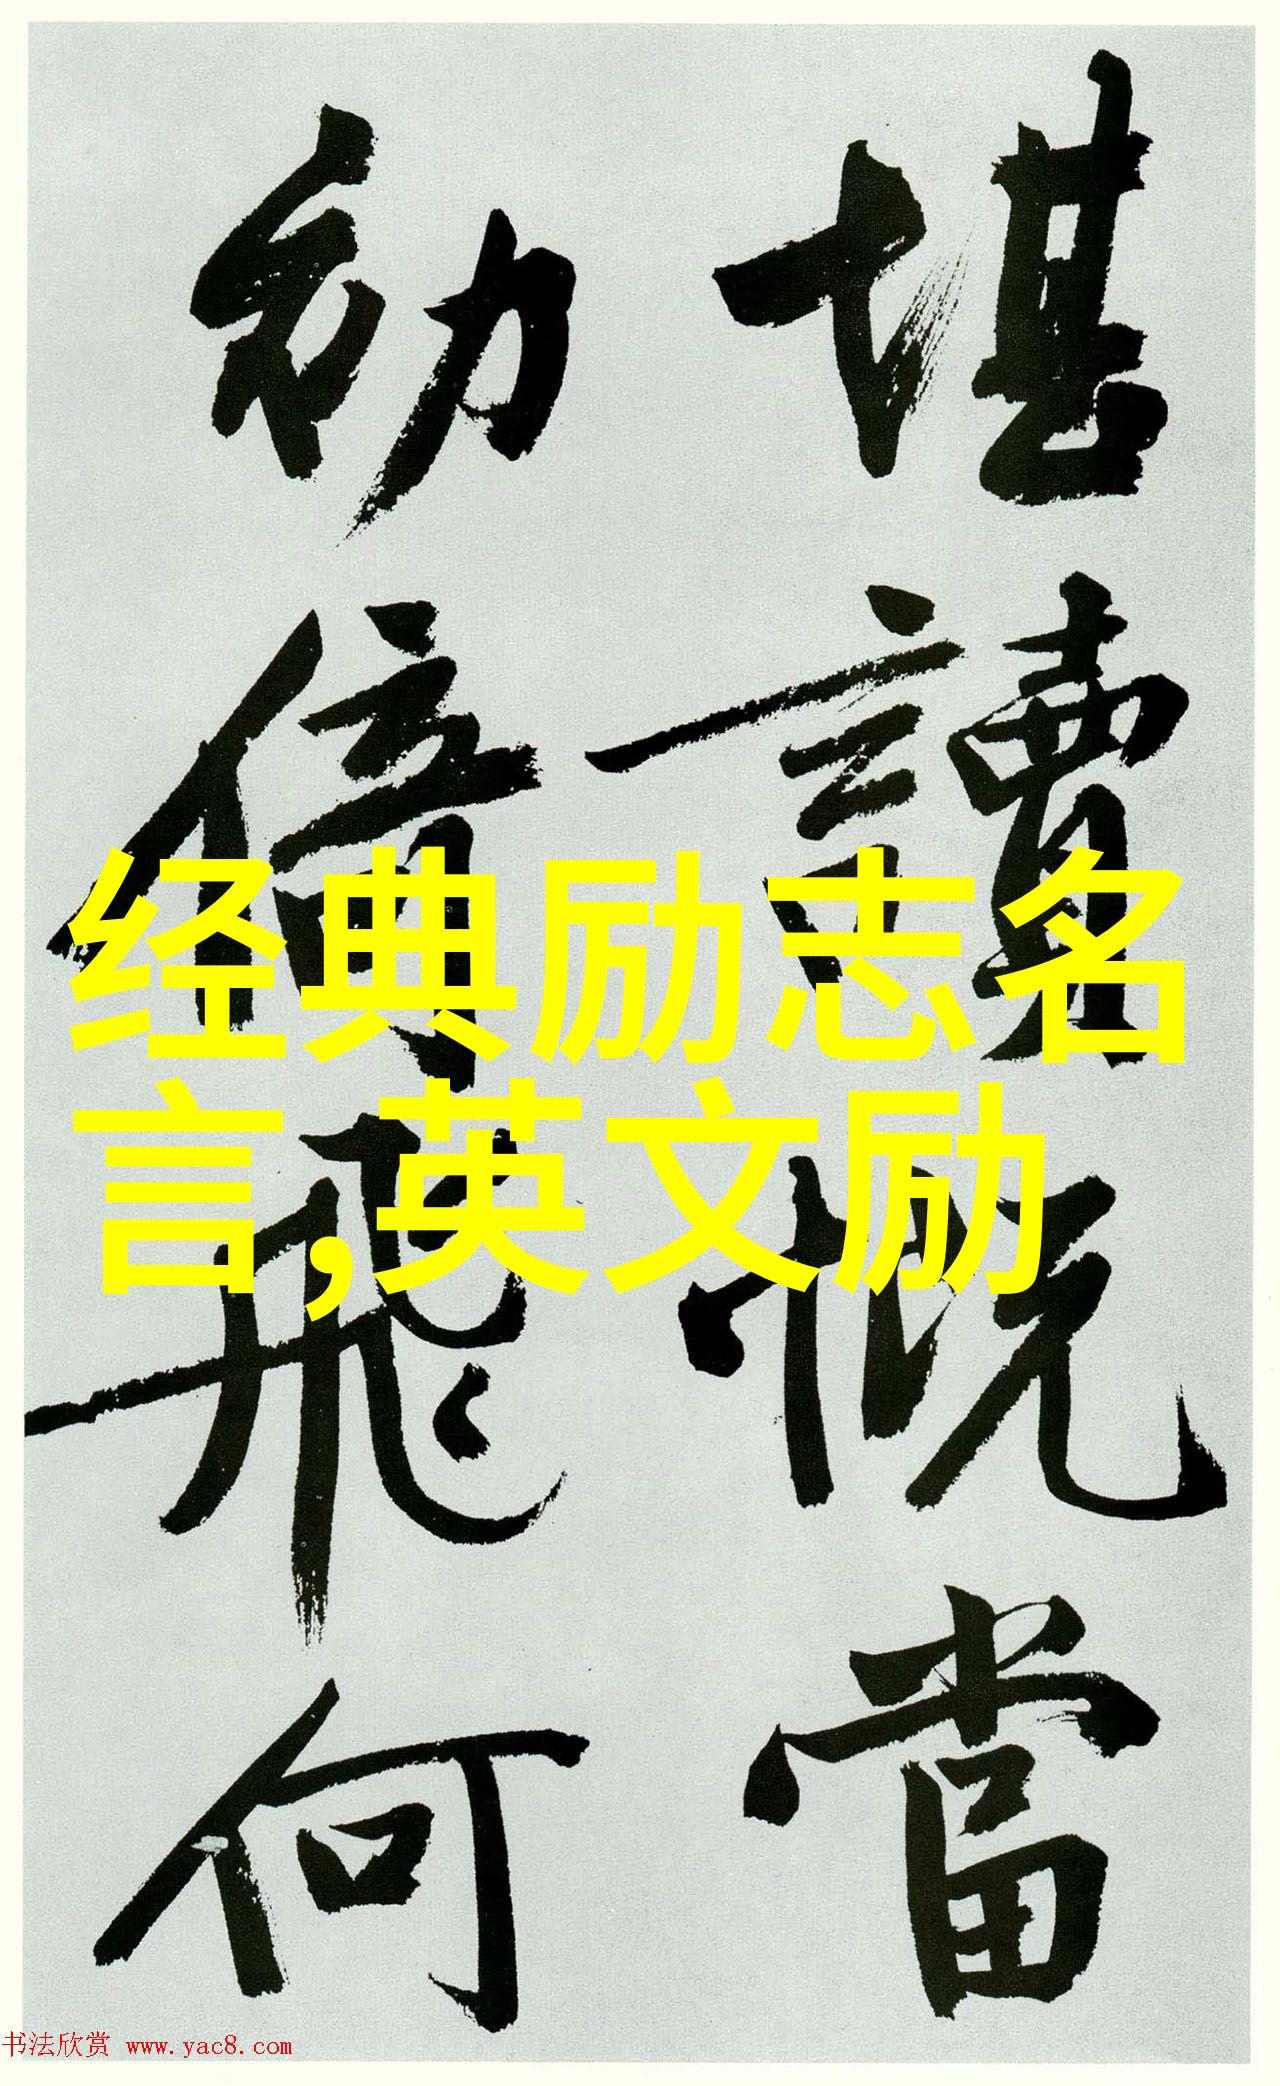 堪讀慨當
倍飛何
经典励志名
言,英文励
书法欣赏 www.yac8.com